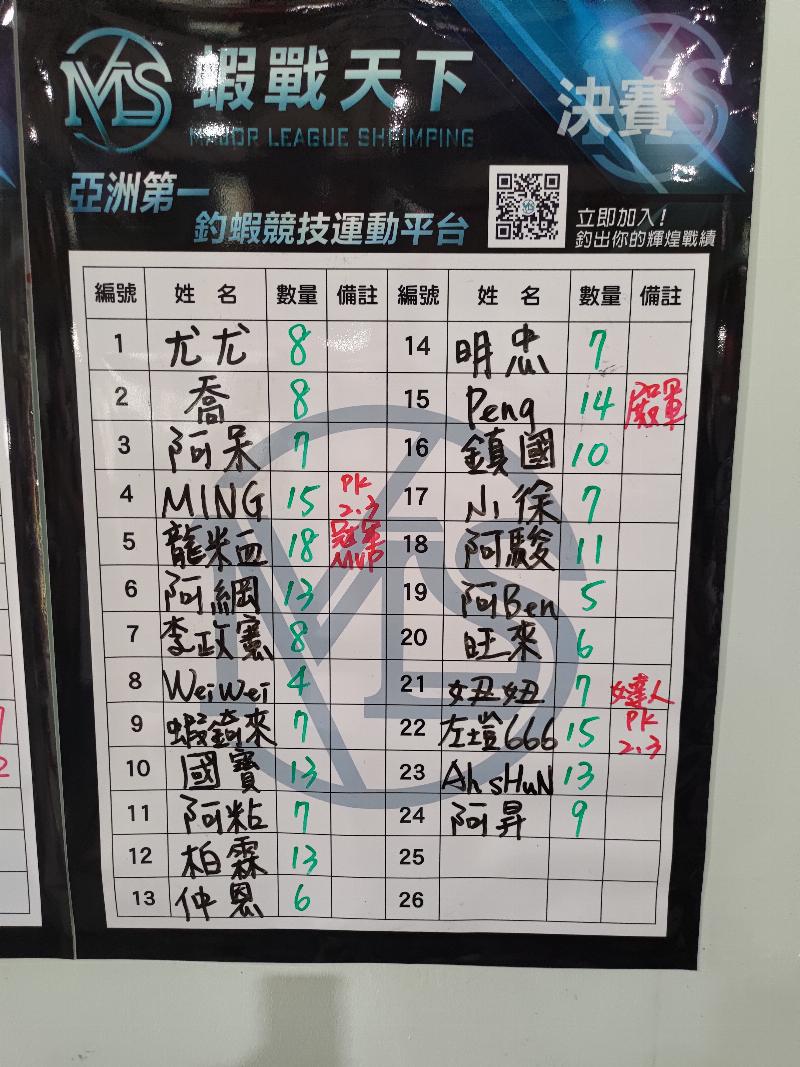 MLS 蝦戰天下
MAJOR LEAGUE SHRIMPING
決賽
亞洲第一
釣蝦競技運動平台
立即加入!
釣出你的輝煌戰績
編號 姓名 數量 備註 編號 姓名 數量 備註
1 尤尤 8 14 明忠 7
2 喬 8 15 Peng 14 殿軍
3 阿呆 7 16 鎮國 10
4 MING 15 PK 2.3 17 小徐 7
5 龍米血 18 冠軍 MVP 18 阿駿 11
6 阿綱 13 19 阿Ben 5
7 李政憲 8 20 旺來 6
8 WeiWei 4 21 妞妞 7 女達人
9 蝦錡來 7 22 左塏666 15 PK 2.3
10 國寶 13 23 AhsHuN 13
11 阿粘 7 24 阿昇 9
12 柏霖 13 25
13 仲恩 6 26